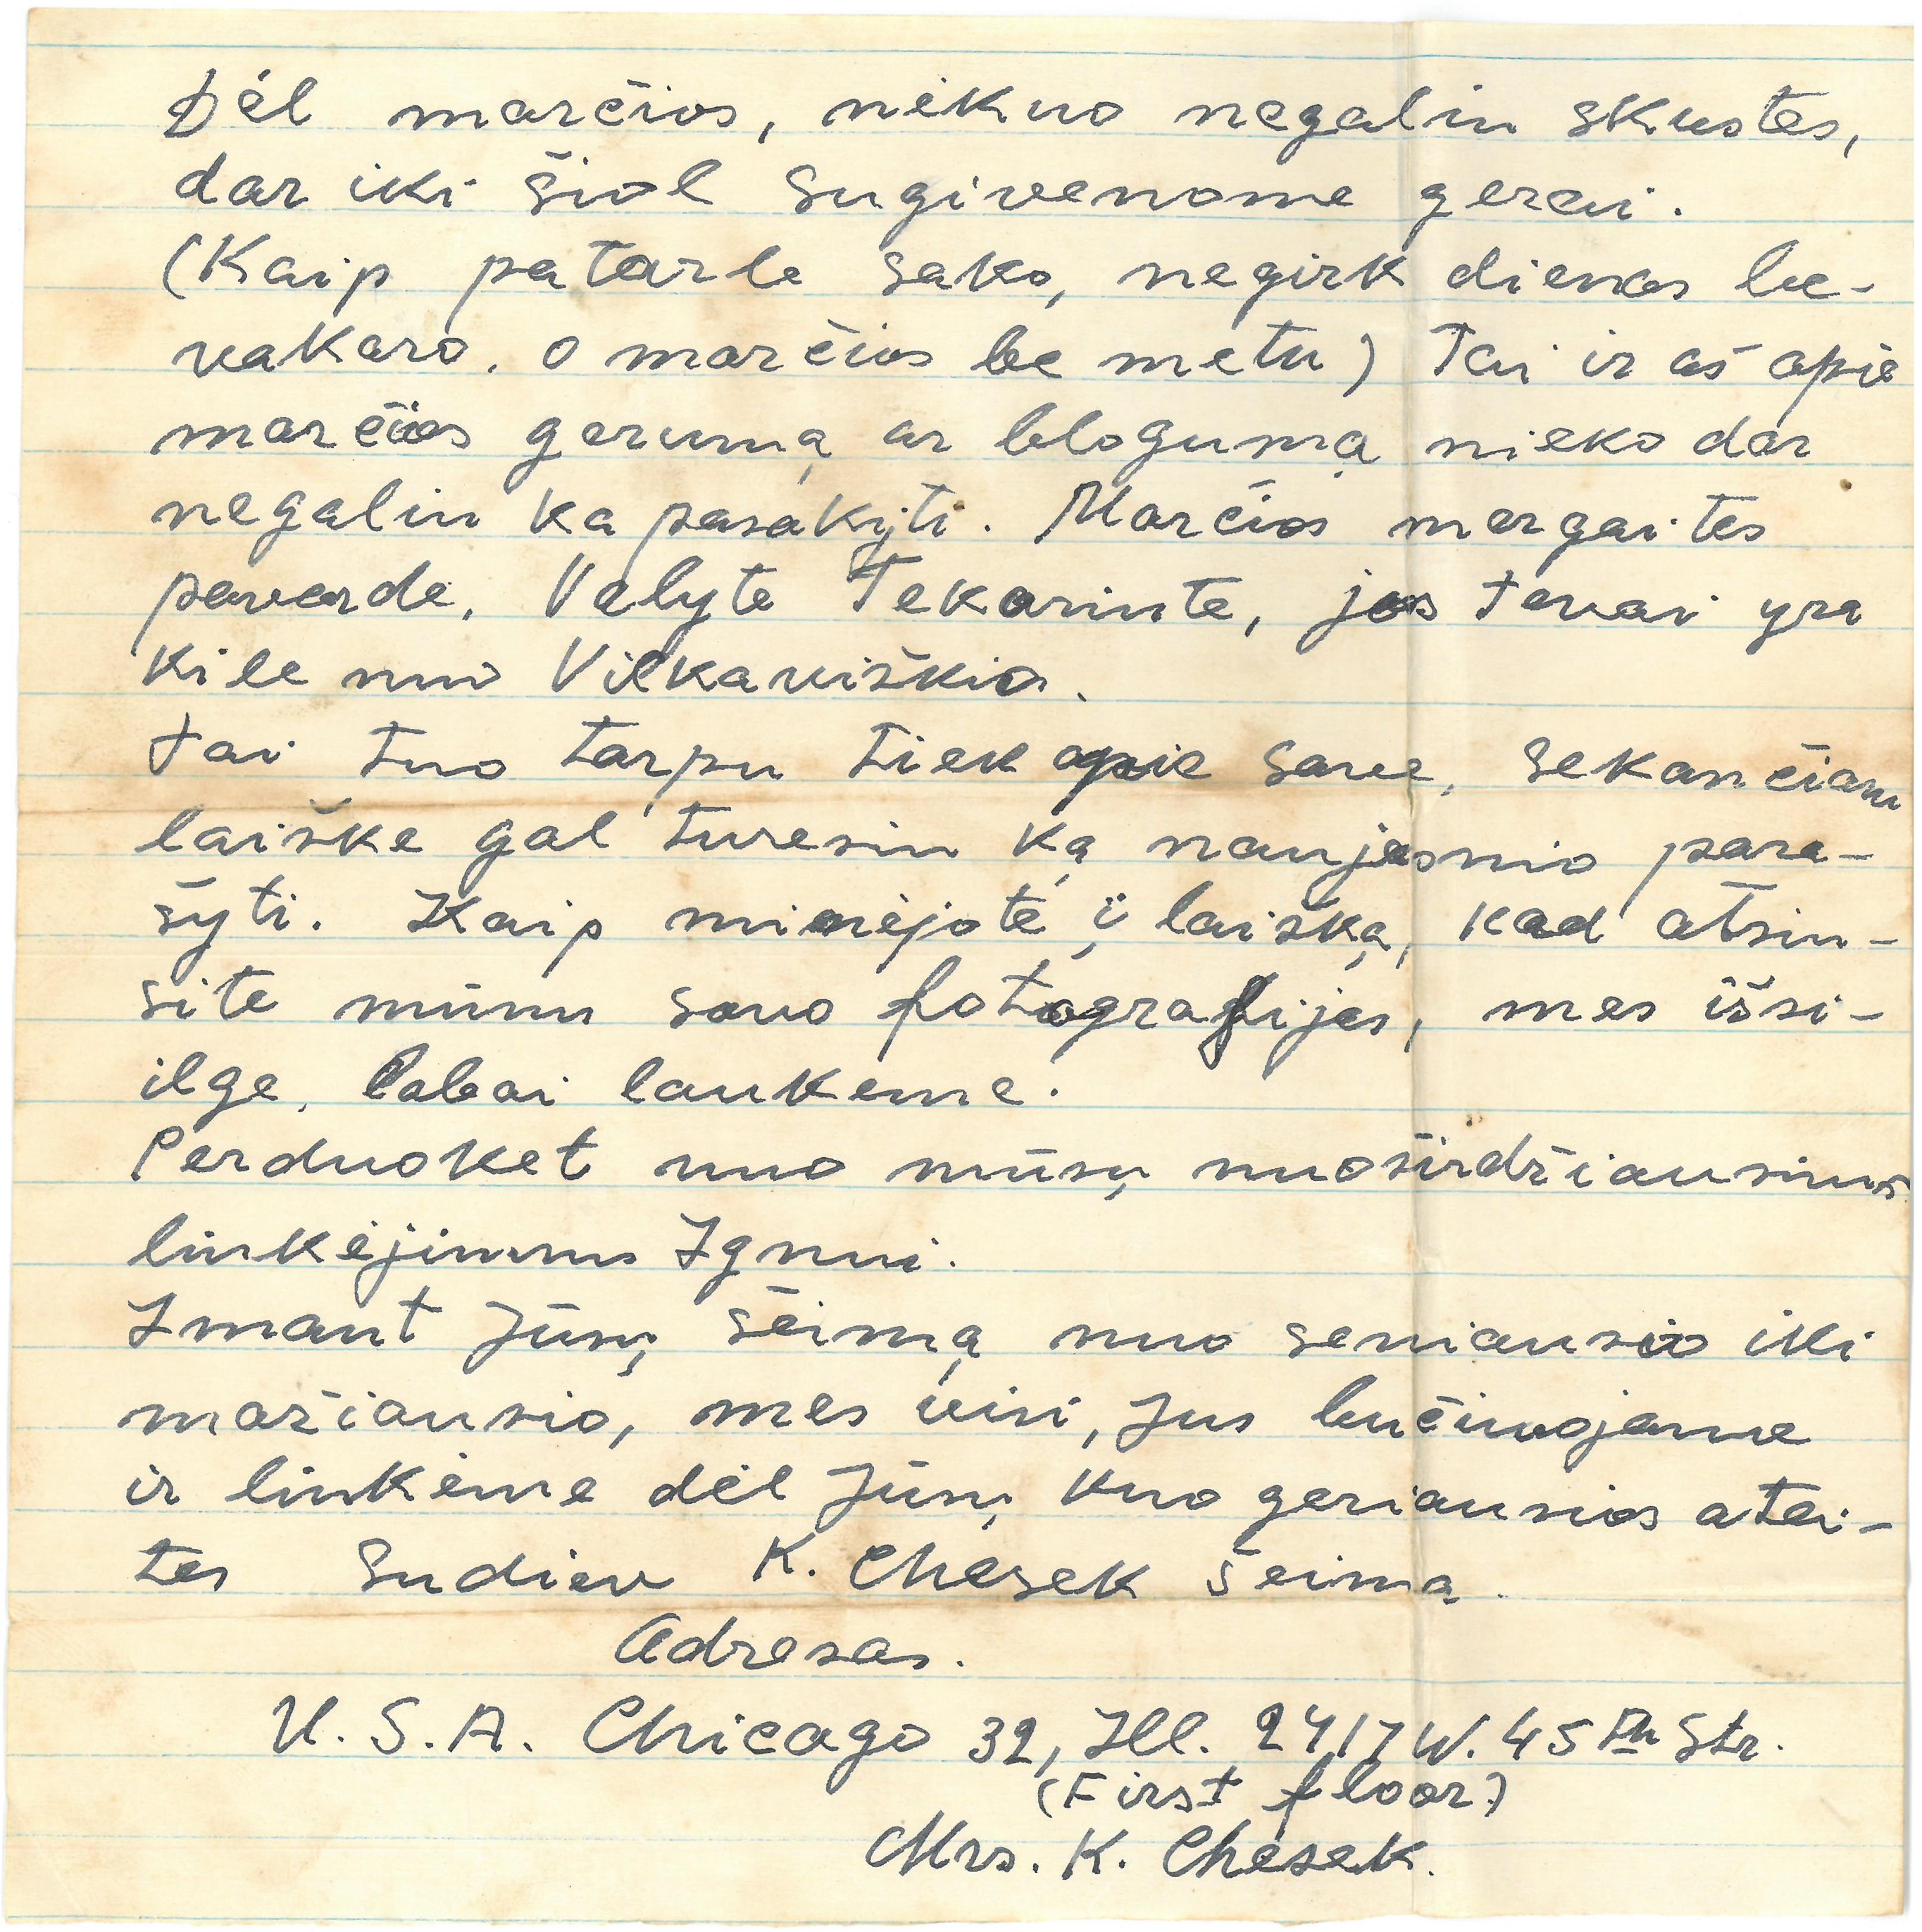 Dėl marčios, niekuo negaliu skustes,
dar iki šiol sugivenome gerai.
(Kaip patarle sako, negirk dienos be-
vakaro, o marčios be metu) Tai ir aš apie
marčios gerumą ar blogumą nieko dar
negaliu ka pasakyti. Marčios mergaites
pavarde, Valyte Tekoriute, jos tevai yra
kile nuo Vilkaviškio.
Tai tuo tarpu tiek apie save, sekančiam
laiške gal turesiu ką naujesnio para-
šyti. Kaip minėjote į laišką, kad atsiu-
site mūmu savo fotografijas, mes išsi-
ilge, labai laukeme.
Perduoket nuo mūsų nuoširdžiausius
linkėjimus Ignui.
Imant Jūsų šeimą nuo seniausio iki
mažiausio, mes visi, Jus bučiuojame
ir linkėme dėl Jūsų kuo geriausios atei-
tes Sudiev K. Chesek šeima.
Adresas.
U.S.A. Chicago 32, Ill. 2417 W. 45th Str.
(First floor)
Mrs. K. Chesek.